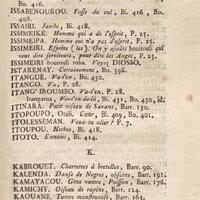 Bo. 416.
ISSABENOUROU. Fosse du col, Bi. 416, Bo.
408.
ISSAIRI. Jambe, Bi. 418.
ISSIMEIKE. Homme qui a de l'esprit, P. 25.
ISSIMEIPA. Homme qui n'a pas d'esprit, P. 25.
ISSIMEIRI. Esprits (les). On y ajoute boulouli qui
veut dire serviteurs, pour dire les Anges, P. 25.
ISSIMEIRI bourouli roba. Voyez DIOSSO.
ISTARENAY. Certainement, Bo. 398.
ITANGUE. Va-t'en, Bo. 430.
ITANGO. Va, P. 28.
ITANG' BOUMBO. Va-t'en, P. 28.
Itangama, Va-t'en de-là, Bi. 431, Bo. 430, id.
ITINARA. Petit oiseau de Savane, Barr. 130.
ITOPOUPO, Otali, Cœur, Bi. 409, Bo. 401.
ITOLESSÈMAN. Veux-tu aller? P. 7.
ITOUPOU. Herbes, Bi. 418.
ITOTO. Ennemi, Bi. 414.
K.
KABROUET. Charrettes à bretelles, Barr. 90.
KALENDA. Danse de Negres, obscène, Barr. 191.
KAMAYACOU. Gros ventre, Poisson, Barr. 176.
KAMICHY. Oiseau de rapine, Barr. 124.
KAOUANE. Tortue monstrueuse, Barr. 161.